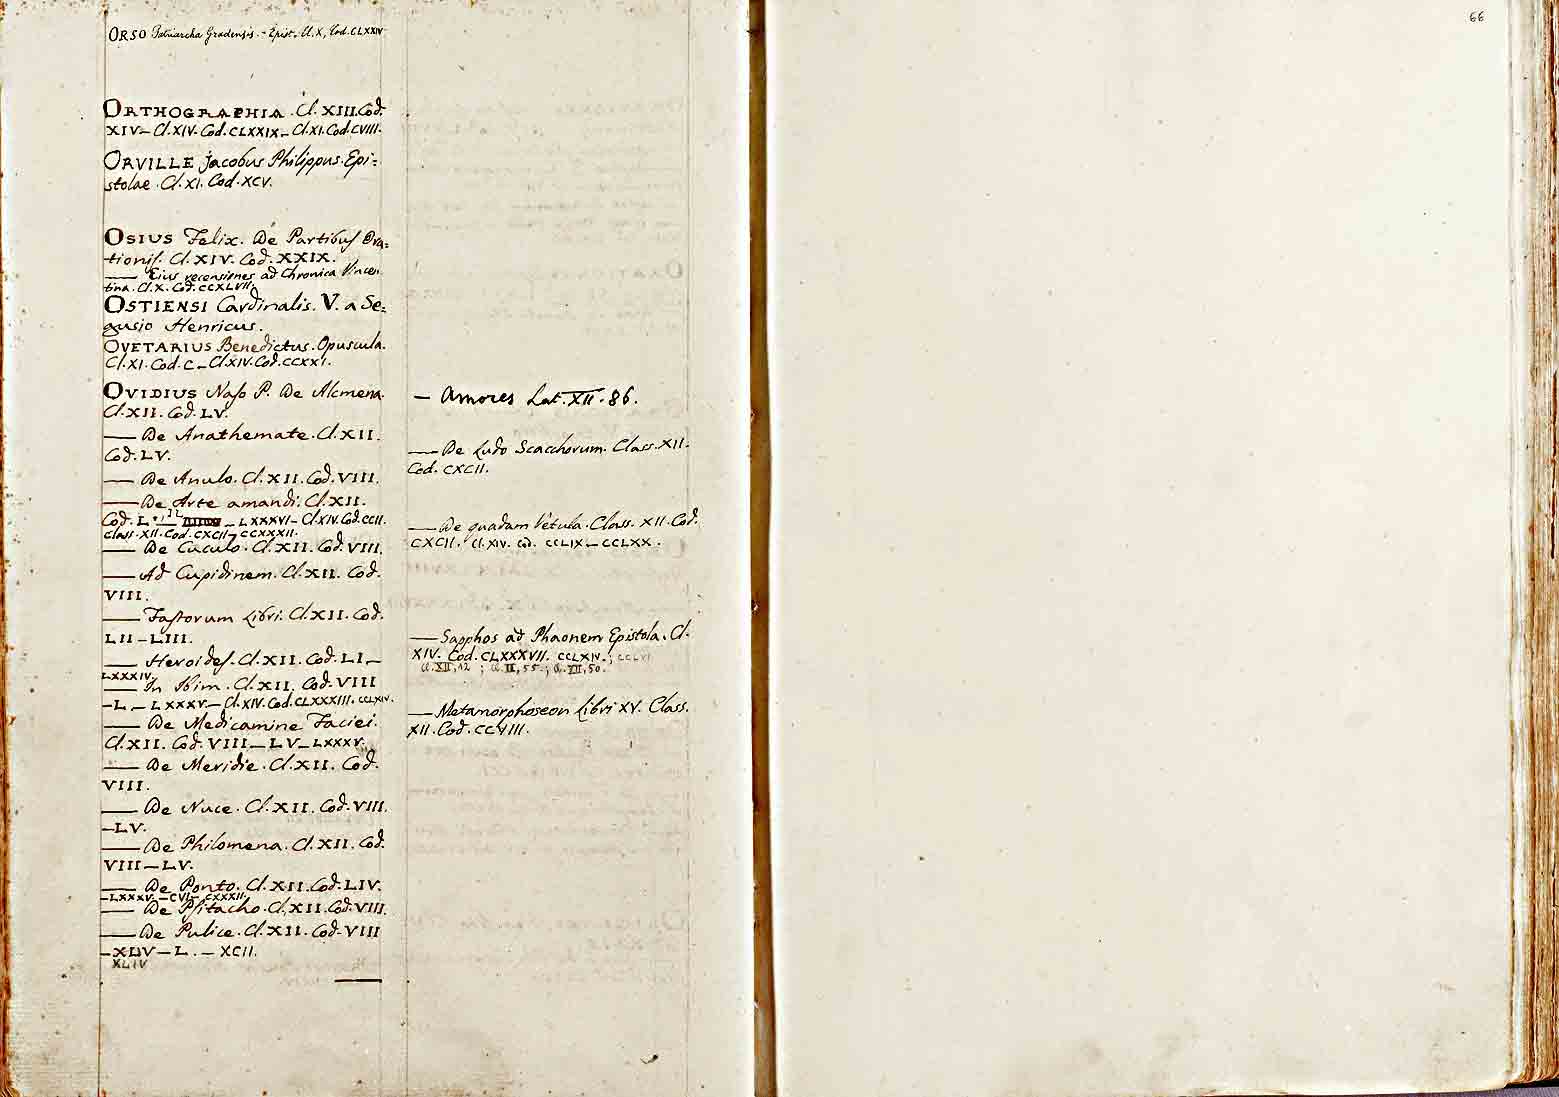 66
ORSO Patriarcha Gradensis. - Epist. Cl. X, Cod. CLXXIV
ORTHOGRAPHIA. Cl. XIII. Cod.
XIV – Cl. XIV. Cod. CLXXIX – Cl. XI. Cod. CVIII.
ORVILLE Jacobus Philippus. Epi=
stolae. Cl. XI. Cod. XCV.
OSIUS Felix. De Partibus Ora=
tionis. Cl. XIV. Cod. XXIX.
— Eius recensiones ad Chronica Vincen
tina. Cl. X. Cod. CCXLVII.
OSTIENSI Cardinalis. V. a Se=
gusio Henricus.
OVETARIUS Benedictus. Opuscula.
Cl. XI. Cod. C – Cl. XIV. Cod. CCXXI.
OVIDIUS Naso P. De Alcmena.
Cl. XII. Cod. LV.
— De Anathemate. Cl. XII.
Cod. LV.
— De Anulo. Cl. XII. Cod. VIII.
— De Arte amandi. Cl. XII.
Cod. L – LXXXVI – Cl. XIV. Cod. CCII.
Class. XII. Cod. CXCII – CCXXXII.
— De Cuculo. Cl. XII. Cod. VIII.
— Ad Cupidinem. Cl. XII. Cod.
VIII.
— Fastorum Libri. Cl. XII. Cod.
LII – LIII.
— Heroides. Cl. XII. Cod. LI –
LXXXIV.
— In Ibim. Cl. XII. Cod. VIII
– L – LXXXV – Cl. XIV. Cod. CLXXXIII. CCLXIV.
— De Medicamine Faciei.
Cl. XII. Cod. VIII – LV – LXXXV.
— De Meridie. Cl. XII. Cod.
VIII.
— De Nuce. Cl. XII. Cod. VIII.
– LV.
— De Philomena. Cl. XII. Cod.
VIII – LV.
— De Ponto. Cl. XII. Cod. LIV.
– LXXXV. – CVI – CXXXII.
— De Psitacho. Cl. XII. Cod. VIII.
— De Pulice. Cl. XII. Cod. VIII
– XLIV – L. – XCII.
XLIV
— Amores Lat. XII. 86.
— De Ludo Scacchorum. Class. XII.
Cod. CXCII.
— De quadam Vetula. Class. XII. Cod.
CXCII. Cl. XIV. Cod. CCLIX – CCLXX.
— Sapphos ad Phaonem Epistola. Cl.
XIV. Cod. CLXXXVII. CCLXIV.; CCLVI
Cl. XII, 12; Cl. II, 55.; Cl. XII, 50.
— Metamorphoseon Libri XV. Class.
XII. Cod. CCVIII.